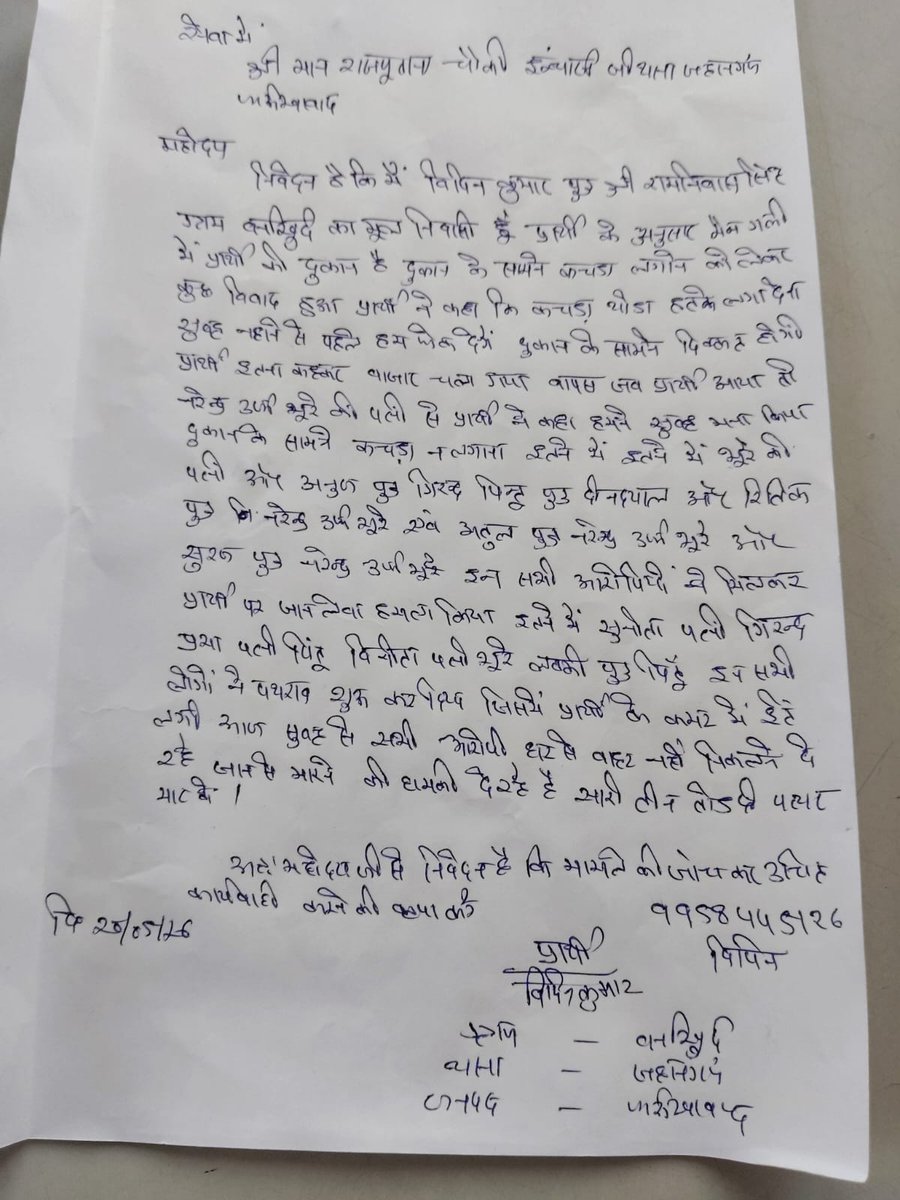 सेवा में
श्री मान राजपूताना चौकी इन्चार्ज जी थाना जहानगंज
फर्रुखाबाद
महोदय
निवेदन है कि मैं विपिन कुमार पुत्र श्री रामनिवास सिंह
ग्राम का मूल निवासी हूँ प्रार्थी के अनुसार मैन गली
में प्रार्थी की दुकान है दुकान के सामने कचड़ा लगाने को लेकर
कुछ विवाद हुआ प्रार्थी ने कहा कि कचड़ा थोडा हटके लगा देना
सुबह नहाने से पहले हम फेक देगें दुकान के सामने दिक्कत होगी
प्रार्थी इतना कहकर बाजार चला गया वापस जब प्रार्थी आया तो
नरेन्द्र उर्फ भूरे की पत्नी से प्रार्थी ने कहा हमने सुबह मना किया
दुकान के सामने कचड़ा न लगाना इतने में इतने में भूरे की
पत्नी और अनुज पुत्र गिरन्द पिन्टू पुत्र दीनदयाल और रितिक
पुत्र नरेन्द्र उर्फ भूरे एवं अतुल पुत्र नरेन्द्र उर्फ भूरे और
सुरज पुत्र नरेन्द्र उर्फ भूरे इन सभी आरोपियों ने मिलकर
प्रार्थी पर जान लेवा हमला किया इतने में सुनीता पत्नी गिरन्द
प्रभा पत्नी पिंटू विनीता पत्नी भूरे लक्की पुत्र पिंटू इन सभी
लोगों ने पथराव शुरू कर दिया जिसमें प्रार्थी के कमर में ईटें
लगी आज सुबह से सभी आरोपी घर से बाहर नहीं निकलने दे
रहे जान से मारने की धमकी दे रहे है सारी टीन तोड दी पत्थर
मार के।
अतः महोदय जी से निवेदन है कि मामले की जांच कर उचित
कार्यवाही करने की कृपा करें
९९५8४५५5१२6
दि /05/26
प्रार्थी विपिन
विपिन कुमार
ग्राम —
थाना — जहानगंज
जनपद — फर्रुखाबाद